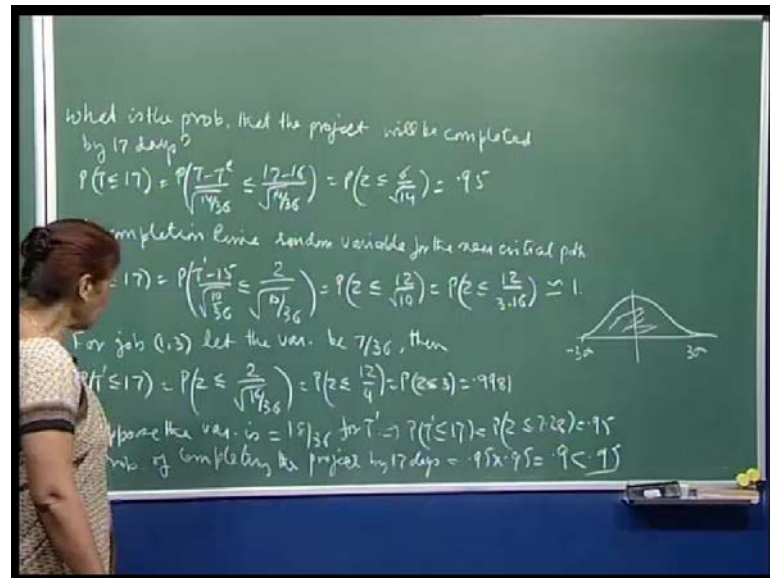 What is the prob. that the project will be completed
by 17 days?
P(T ≤ 17) = P(T-Tᵉ/√14/36 ≤ 17-16/√14/36) = P(Z ≤ 6/√14) = .95
completion time random variable for the near critical path
= 17) = P(T'-15/√10/36 ≤ 2/√10/36) = P(Z ≤ 12/√10) = P(Z ≤ 12/3.16) ≃ 1
For job (1,3) let the var. be 7/36, then
P(T' ≤ 17) = P(Z ≤ 2/√14/36) = P(Z ≤ 12/4) = P(Z ≤ 3) = .9981
-3σ 3σ
the var. is = 15/36 for T' → P(T' ≤ 17) = P(Z ≤ ) = .95
of completing the project by 17 days = .95 x .95 = .9 < .95